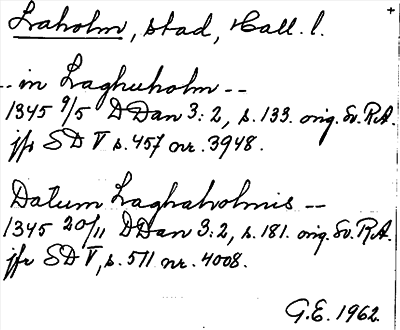 Laholm, stad, Hall. l.
-- in Laghuholm --
1345 9/5 DDan 3:2, s. 133. orig. Sv. R.A.
jfr SD V s. 457 nr. 3948.
Datum Laghaholmis --
1345 20/11 DDan 3:2, s. 181. orig. Sv. R.A.
jfr SD V, s. 511 nr. 4008.
G.E. 1962.